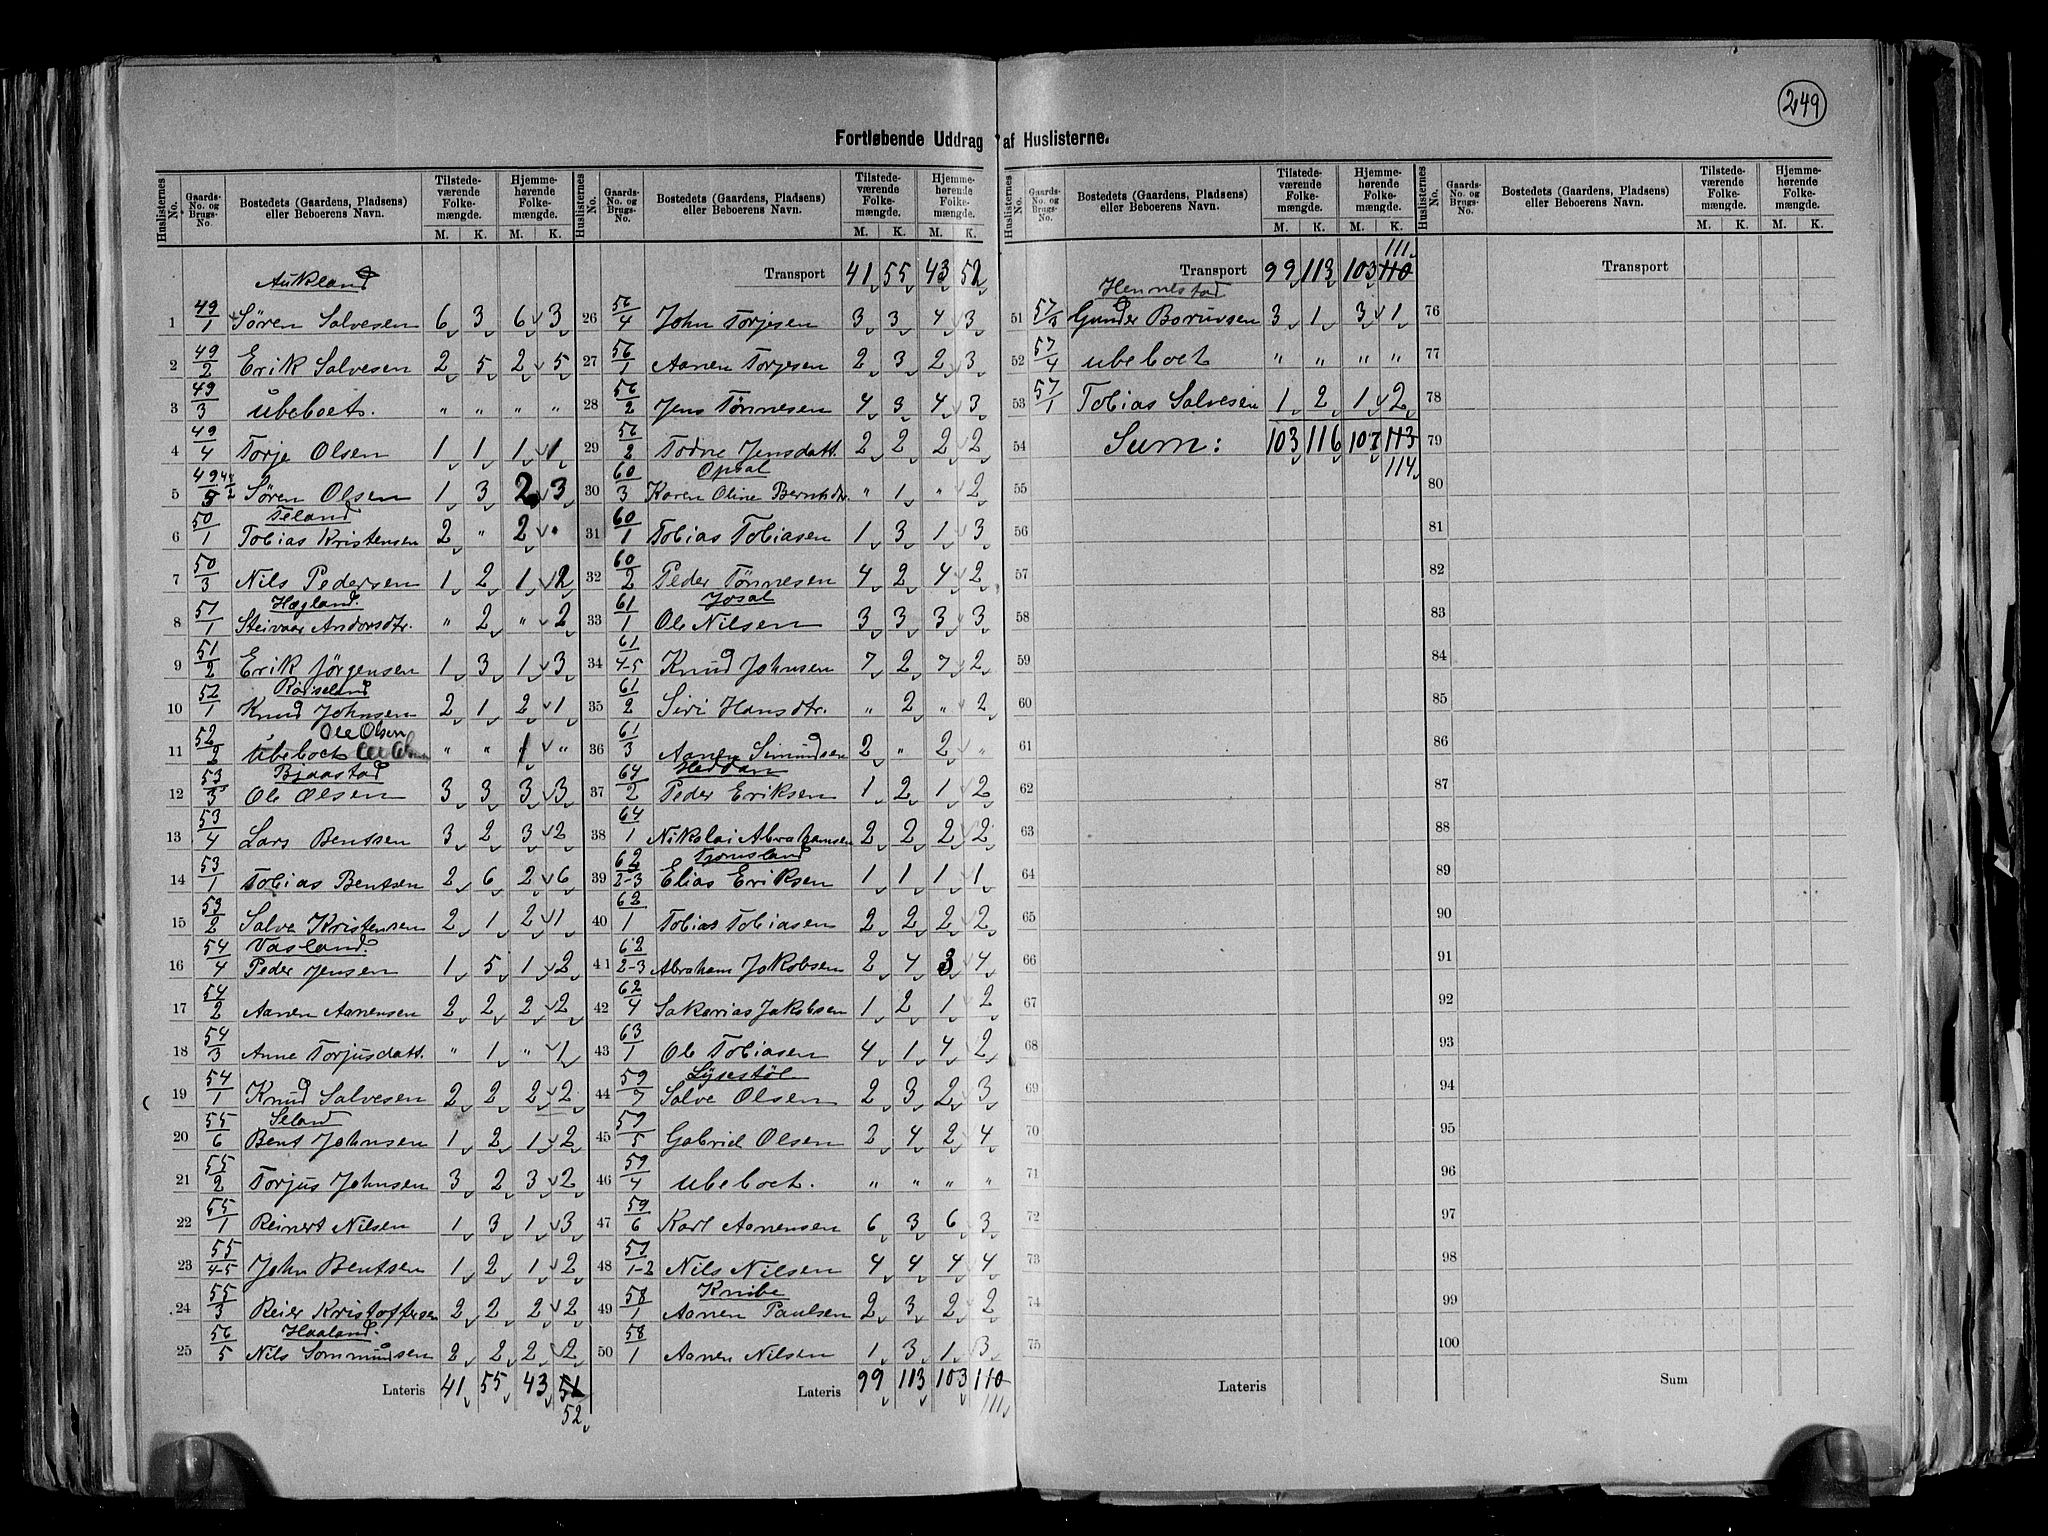 249
Fortløbende Uddrag af Huslisterne.
Huslisternes No. | Gaards-No. og Brugs-No. | Bostedets (Gaardens, Pladsens) eller Beboerens Navn. | Tilstedeværende Folkemængde. M. K. | Hjemmehørende Folkemængde. M. K.
Aukland
1 49/1 Søren Salvesen 6 3 6 3
2 49/2 Erik Salvesen 2 5 2 5
3 49/3 Ubeboet. " " " "
4 49/4 Torje Olsen 1 1 1 1
5 49/5 44/2 Søren Olsen 1 3 2 3
Teland
6 50/1 Tobias Kristensen 2 " 2 "
7 50/3 Nils Pedersen 1 2 1 2
Hægland.
8 51/1 Steivaar Andorsdtr. " 2 " 2
9 51/2 Erik Jørgensen 1 3 1 3
Röiseland
10 52/1 Knud Johnsen 2 1 2 1
Ole Olsen
11 52/2 Ubeboet " " 1 "
Bjaastad
12 53/3 Ole Olsen 3 3 3 3
13 53/4 Lars Bentsen 3 2 3 2
14 53/1 Tobias Bentsen 2 6 2 6
15 53/2 Salve Kristensen 2 1 2 1
Vasland
16 54/4 Peder Jensen 1 5 1 2
17 54/2 Aanen Aanensen 2 2 2 2
18 54/3 Anne Torjusdatt. " 1 " 1
19 54/1 Knud Salvesen 2 2 2 2
Seland
20 55/6 Bent Johnsen 1 2 1 2
21 55/2 Torjus Johnsen 3 2 3 2
22 55/1 Reinert Nilsen 1 3 1 3
23 55/4-5 John Bentsen 1 2 1 2
24 55/3 Reier Kristoffersen 2 2 2 2
Haaland.
25 56/5 Nils Sommundsen 2 2 2 2
Lateris 41 55 43 51
52
Huslisternes No. | Gaards-No. og Brugs-No. | Bostedets (Gaardens, Pladsens) eller Beboerens Navn. | Tilstedeværende Folkemængde. M. K. | Hjemmehørende Folkemængde. M. K.
Transport 41 55 43 52
26 56/4 John Torjesen 3 3 4 3
27 56/1 Aanen Torjesen 2 3 2 3
28 56/2 Jens Tönnesen 4 3 4 3
29 56/2 Todne Jensdatt. 2 2 2 2
Opsal
30 60/3 Karen Oline Berntsdtr. " 1 " 2
31 60/1 Tobias Tobiasen 1 3 1 3
32 60/2 Peder Tönnesen 4 2 4 2
Josal
33 61/1 Ole Nilsen 3 3 3 3
34 61/4-5 Knud Johnsen 7 2 7 2
35 61/2 Siri Hansdtr. " 2 " 2
36 61/3 Aanen Simundsen 2 " 2 "
Heddan
37 64/2 Peder Eriksen 1 2 1 2
38 64/1 Nikolai Abrahamsen 2 2 2 2
Tjomsland
39 62/2-3 Elias Eriksen 1 1 1 1
40 62/1 Tobias Tobiasen 2 2 2 2
41 62/2-3 Abraham Jakobsen 2 4 3 4
42 62/4 Sakarias Jakobsen 1 2 1 2
43 63/1 Ole Tobiasen 4 1 4 2
Lysestöl
44 59/7 Salve Olsen 2 3 2 3
45 59/5 Gabriel Olsen 2 4 2 4
46 59/4 Ubeboet. " " " "
47 59/6 Karl Aanensen 6 3 6 3
48 59/1-2 Nils Nilsen 4 4 4 4
Knibe
49 58/1 Aanen Paulsen 2 3 2 2
50 58/1 Aanen Nilsen 1 3 1 3
Lateris 99 113 103 110
111
Huslisternes No. | Gaards-No. og Brugs-No. | Bostedets (Gaardens, Pladsens) eller Beboerens Navn. | Tilstedeværende Folkemængde. M. K. | Hjemmehørende Folkemængde. M. K.
111
Transport 99 113 103 110
Hennestad
51 57/3 Gunder Boruvsen 3 1 3 1
52 57/4 Ubeboet " " " "
53 57/1 Tobias Salvesen 1 2 1 2
54 Sum: 103 116 107 113
114
55
56
57
58
59
60
61
62
63
64
65
66
67
68
69
70
71
72
73
74
75
Lateris
Huslisternes No. | Gaards-No. og Brugs-No. | Bostedets (Gaardens, Pladsens) eller Beboerens Navn. | Tilstedeværende Folkemængde. M. K. | Hjemmehørende Folkemængde. M. K.
Transport
76
77
78
79
80
81
82
83
84
85
86
87
88
89
90
91
92
93
94
95
96
97
98
99
100
Sum